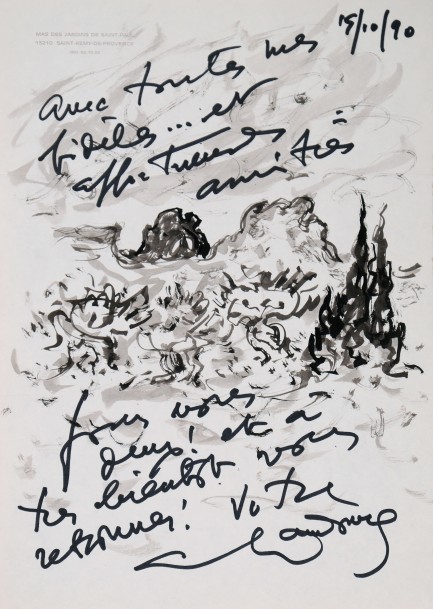 MAS DES JARDINS DE SAINT-PAUL
13210 SAINT-REMY-DE-PROVENCE
15/10/90
avec toutes mes
fidèles... et
affectueuses
amitiés
pour vous
deux! et à
très bientôt vous
retrouver! Votre